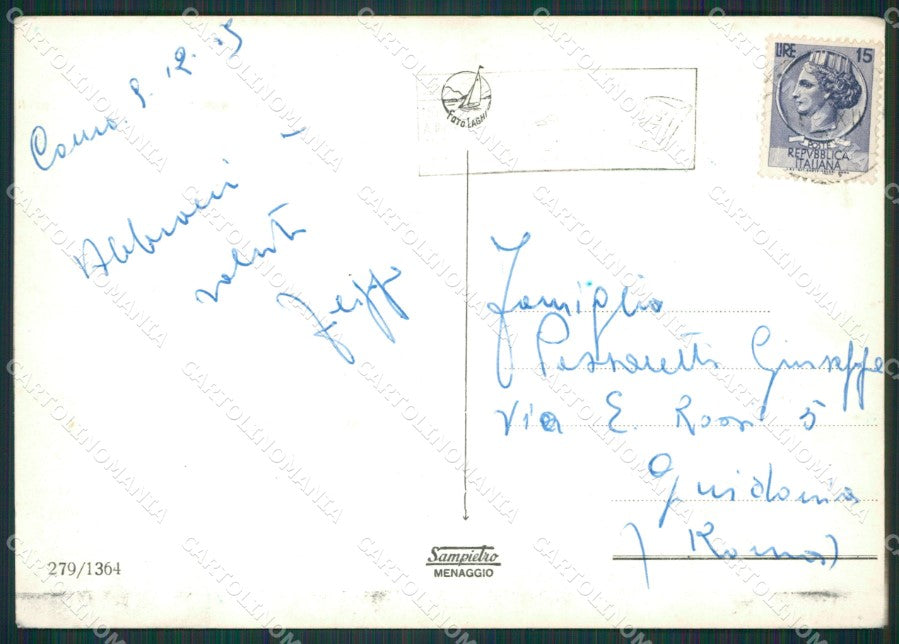 Como 9.12.75
Abbracci
saluti
Zeppo
FOTO LAGHI
LIRE 15
POSTE
REPVBBLICA
ITALIANA
Famiglia
Passaretti Giuseppe
Via E. Rossi 5
Guidonia
(Roma)
279/1364
Sampietro
MENAGGIO
CARTOLINOMANIA